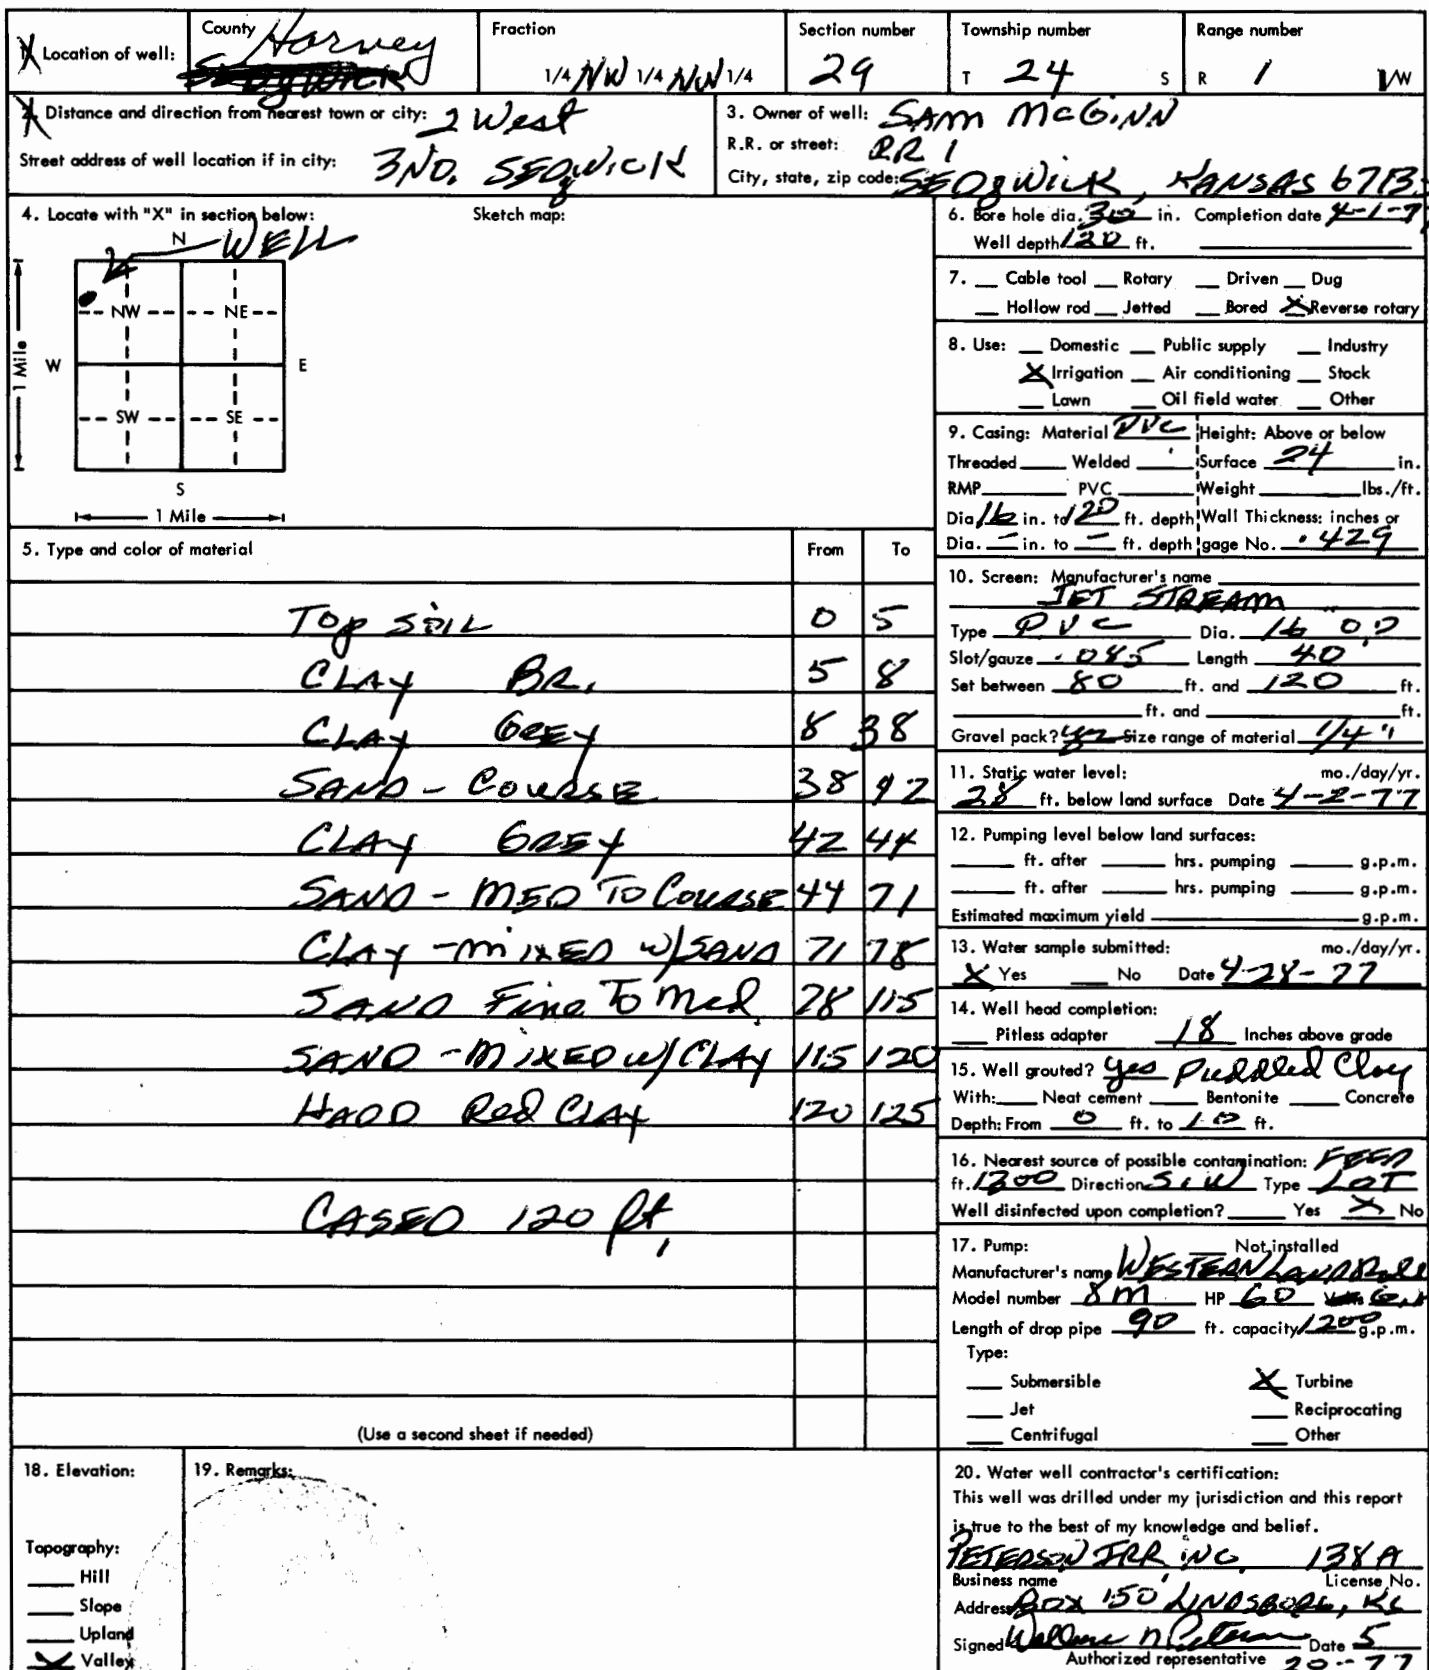 1. Location of well: County Harvey Fraction Section number Township number Range number
Sedgwick 1/4 NW 1/4 NW 1/4 29 T 24 S R 1 W
2. Distance and direction from nearest town or city: 2 West
Street address of well location if in city: 3NO. SEDgWICK
3. Owner of well: SAM McGINN
R.R. or street: RR 1
City, state, zip code: SEDgWICK, KANSAS
4. Locate with "X" in section below: Sketch map:
N WELL
NW NE
W E
1 Mile
SW SE
S
1 Mile
5. Type and color of material From To
Top SOIL 0 5
CLAY BR. 5 8
CLAY GREY 8 38
SAND - COURSE 38 42
CLAY GREY 42 44
SAND - MED TO COURSE 44 71
CLAY - MIXED W/SAND 71 78
SAND Fine To Med. 78 115
SAND - MIXED W/ CLAY 115 120
HARD Red CLAY 120 125
CASED 120 ft.
(Use a second sheet if needed)
6. Bore hole dia. 30 in. Completion date 4-1-7
Well depth 120 ft.
7. Cable tool Rotary Driven Dug
Hollow rod Jetted Bored X Reverse rotary
8. Use: Domestic Public supply Industry
X Irrigation Air conditioning Stock
Lawn Oil field water Other
9. Casing: Material PVC Height: Above or below
Threaded Welded Surface 24 in.
RMP PVC Weight lbs./ft.
Dia 16 in. to 120 ft. depth Wall Thickness: inches or
Dia. – in. to – ft. depth gage No. .429
10. Screen: Manufacturer's name
JET STREAM
Type PVC Dia. 16 O.D
Slot/gauze .085 Length 40'
Set between 80 ft. and 120 ft.
ft. and ft.
Gravel pack? yes Size range of material 1/4"
11. Static water level: mo./day/yr.
28 ft. below land surface Date 4-2-77
12. Pumping level below land surfaces:
ft. after hrs. pumping g.p.m.
ft. after hrs. pumping g.p.m.
Estimated maximum yield g.p.m.
13. Water sample submitted: mo./day/yr.
X Yes No Date 4-28-77
14. Well head completion:
Pitless adapter 18 Inches above grade
15. Well grouted? yes Puddled Clay
With: Neat cement Bentonite Concrete
Depth: From 0 ft. to 10 ft.
16. Nearest source of possible contamination: FEED
ft. 1300 Direction S.W Type LOT
Well disinfected upon completion? Yes X No
17. Pump: Not installed
Manufacturer's name WESTERN LAND Roll
Model number 8M HP 60
Length of drop pipe 90 ft. capacity 1200 g.p.m.
Type:
Submersible X Turbine
Jet Reciprocating
Centrifugal Other
18. Elevation:
Topography:
Hill
Slope
Upland
X Valley
19. Remarks:
20. Water well contractor's certification:
This well was drilled under my jurisdiction and this report
is true to the best of my knowledge and belief.
PETERSON IRR INC. 138A
Business name License No.
Address BOX 150 LINDSBORG, KS
Signed Wallace N Peterson Date 5
Authorized representative 20-77